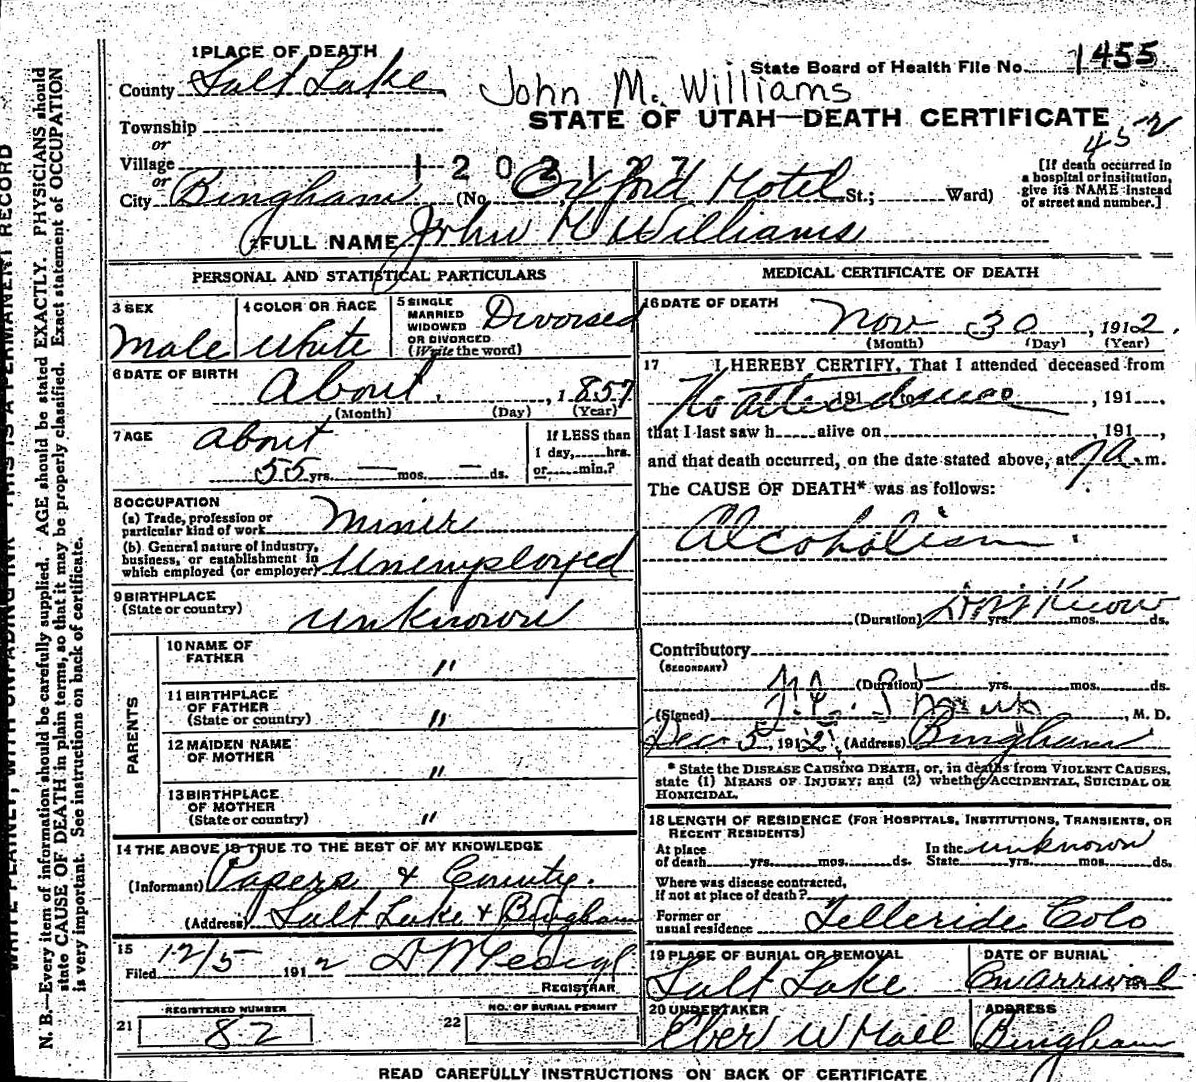 1 PLACE OF DEATH
State Board of Health File No. 1455
County Salt Lake
John M. Williams
STATE OF UTAH—DEATH CERTIFICATE
Township
or
Village
1202127
452
or
City Bingham (No. Oxford Hotel St.; Ward)
[If death occurred in
a hospital or institution,
give its NAME instead
of street and number.]
2 FULL NAME John M Williams
PERSONAL AND STATISTICAL PARTICULARS
3 SEX
Male
4 COLOR OR RACE
White
5 SINGLE
MARRIED
WIDOWED
OR DIVORCED
(Write the word)
Divorsed
6 DATE OF BIRTH
About , 1857
(Month) (Day) (Year)
7 AGE
About
55 yrs. — mos. — ds.
If LESS than
1 day, hrs.
or min.?
8 OCCUPATION
(a) Trade, profession or
particular kind of work Miner
(b) General nature of industry,
business, or establishment in
which employed (or employer) Unemployed
9 BIRTHPLACE
(State or country) unknown
PARENTS
10 NAME OF
FATHER "
11 BIRTHPLACE
OF FATHER
(State or country) "
12 MAIDEN NAME
OF MOTHER "
13 BIRTHPLACE
OF MOTHER
(State or country) "
14 THE ABOVE IS TRUE TO THE BEST OF MY KNOWLEDGE
(Informant) Papers & County.
(Address) Salt Lake & Bingham
15
Filed 12/5 1912
REGISTRAR
21 REGISTERED NUMBER
82
22 NO. OF BURIAL PERMIT
MEDICAL CERTIFICATE OF DEATH
16 DATE OF DEATH
Nov 30, 1912.
(Month) (Day) (Year)
17 I HEREBY CERTIFY, That I attended deceased from
No attendance 191 to , 191 ,
that I last saw h alive on , 191 ,
and that death occurred, on the date stated above, at 7 A. m.
The CAUSE OF DEATH* was as follows:
Alcoholism.
(Duration) Don't Know yrs. mos. ds.
Contributory
(SECONDARY)
(Duration) yrs. mos. ds.
(Signed) , M. D.
Dec 5, 1912, (Address) Bingham
* State the DISEASE CAUSING DEATH, or, in deaths from VIOLENT CAUSES,
state (1) MEANS OF INJURY; and (2) whether ACCIDENTAL, SUICIDAL OR
HOMICIDAL.
18 LENGTH OF RESIDENCE (FOR HOSPITALS, INSTITUTIONS, TRANSIENTS, OR
RECENT RESIDENTS)
At place
of death yrs. mos. ds.
In the
State unknown yrs. mos. ds.
Where was disease contracted,
if not at place of death?
Former or
usual residence Telleride Colo
19 PLACE OF BURIAL OR REMOVAL
Salt Lake
DATE OF BURIAL
On arrival 191
20 UNDERTAKER
Eber W Hall
ADDRESS
Bingham
READ CAREFULLY INSTRUCTIONS ON BACK OF CERTIFICATE
WRITE PLAINLY, WITH UNFADING INK—THIS IS A PERMANENT RECORD
N. B.—Every item of information should be carefully supplied. AGE should be stated EXACTLY. PHYSICIANS should
state CAUSE OF DEATH in plain terms, so that it may be properly classified. Exact statement of OCCUPATION
is very important. See instructions on back of certificate.